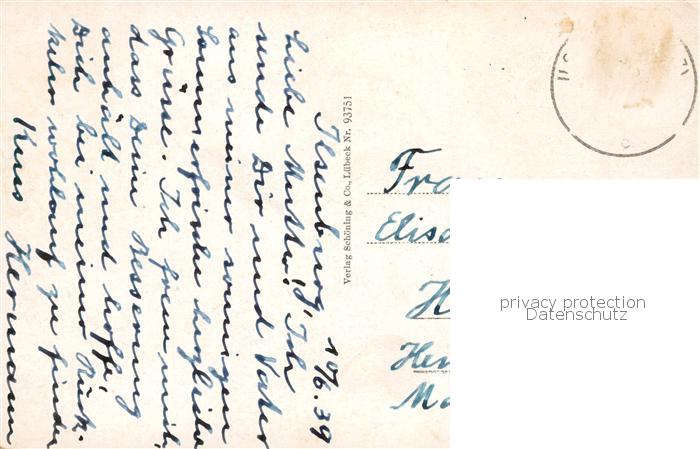 Ilsenburg, 10/6.39
Liebe Mutter! Ich
sende Dir und Vater
aus meiner sonnigen
Sommerfrische herzliche
Grüsse. Ich freue mich,
dass Deine Besserung
anhält und hoffe,
Dich bei meiner Rück-
kehr wohlauf zu finden
Kuss Hermann
Verlag Schöning & Co., Lübeck Nr. 93751
privacy protection
Datenschutz